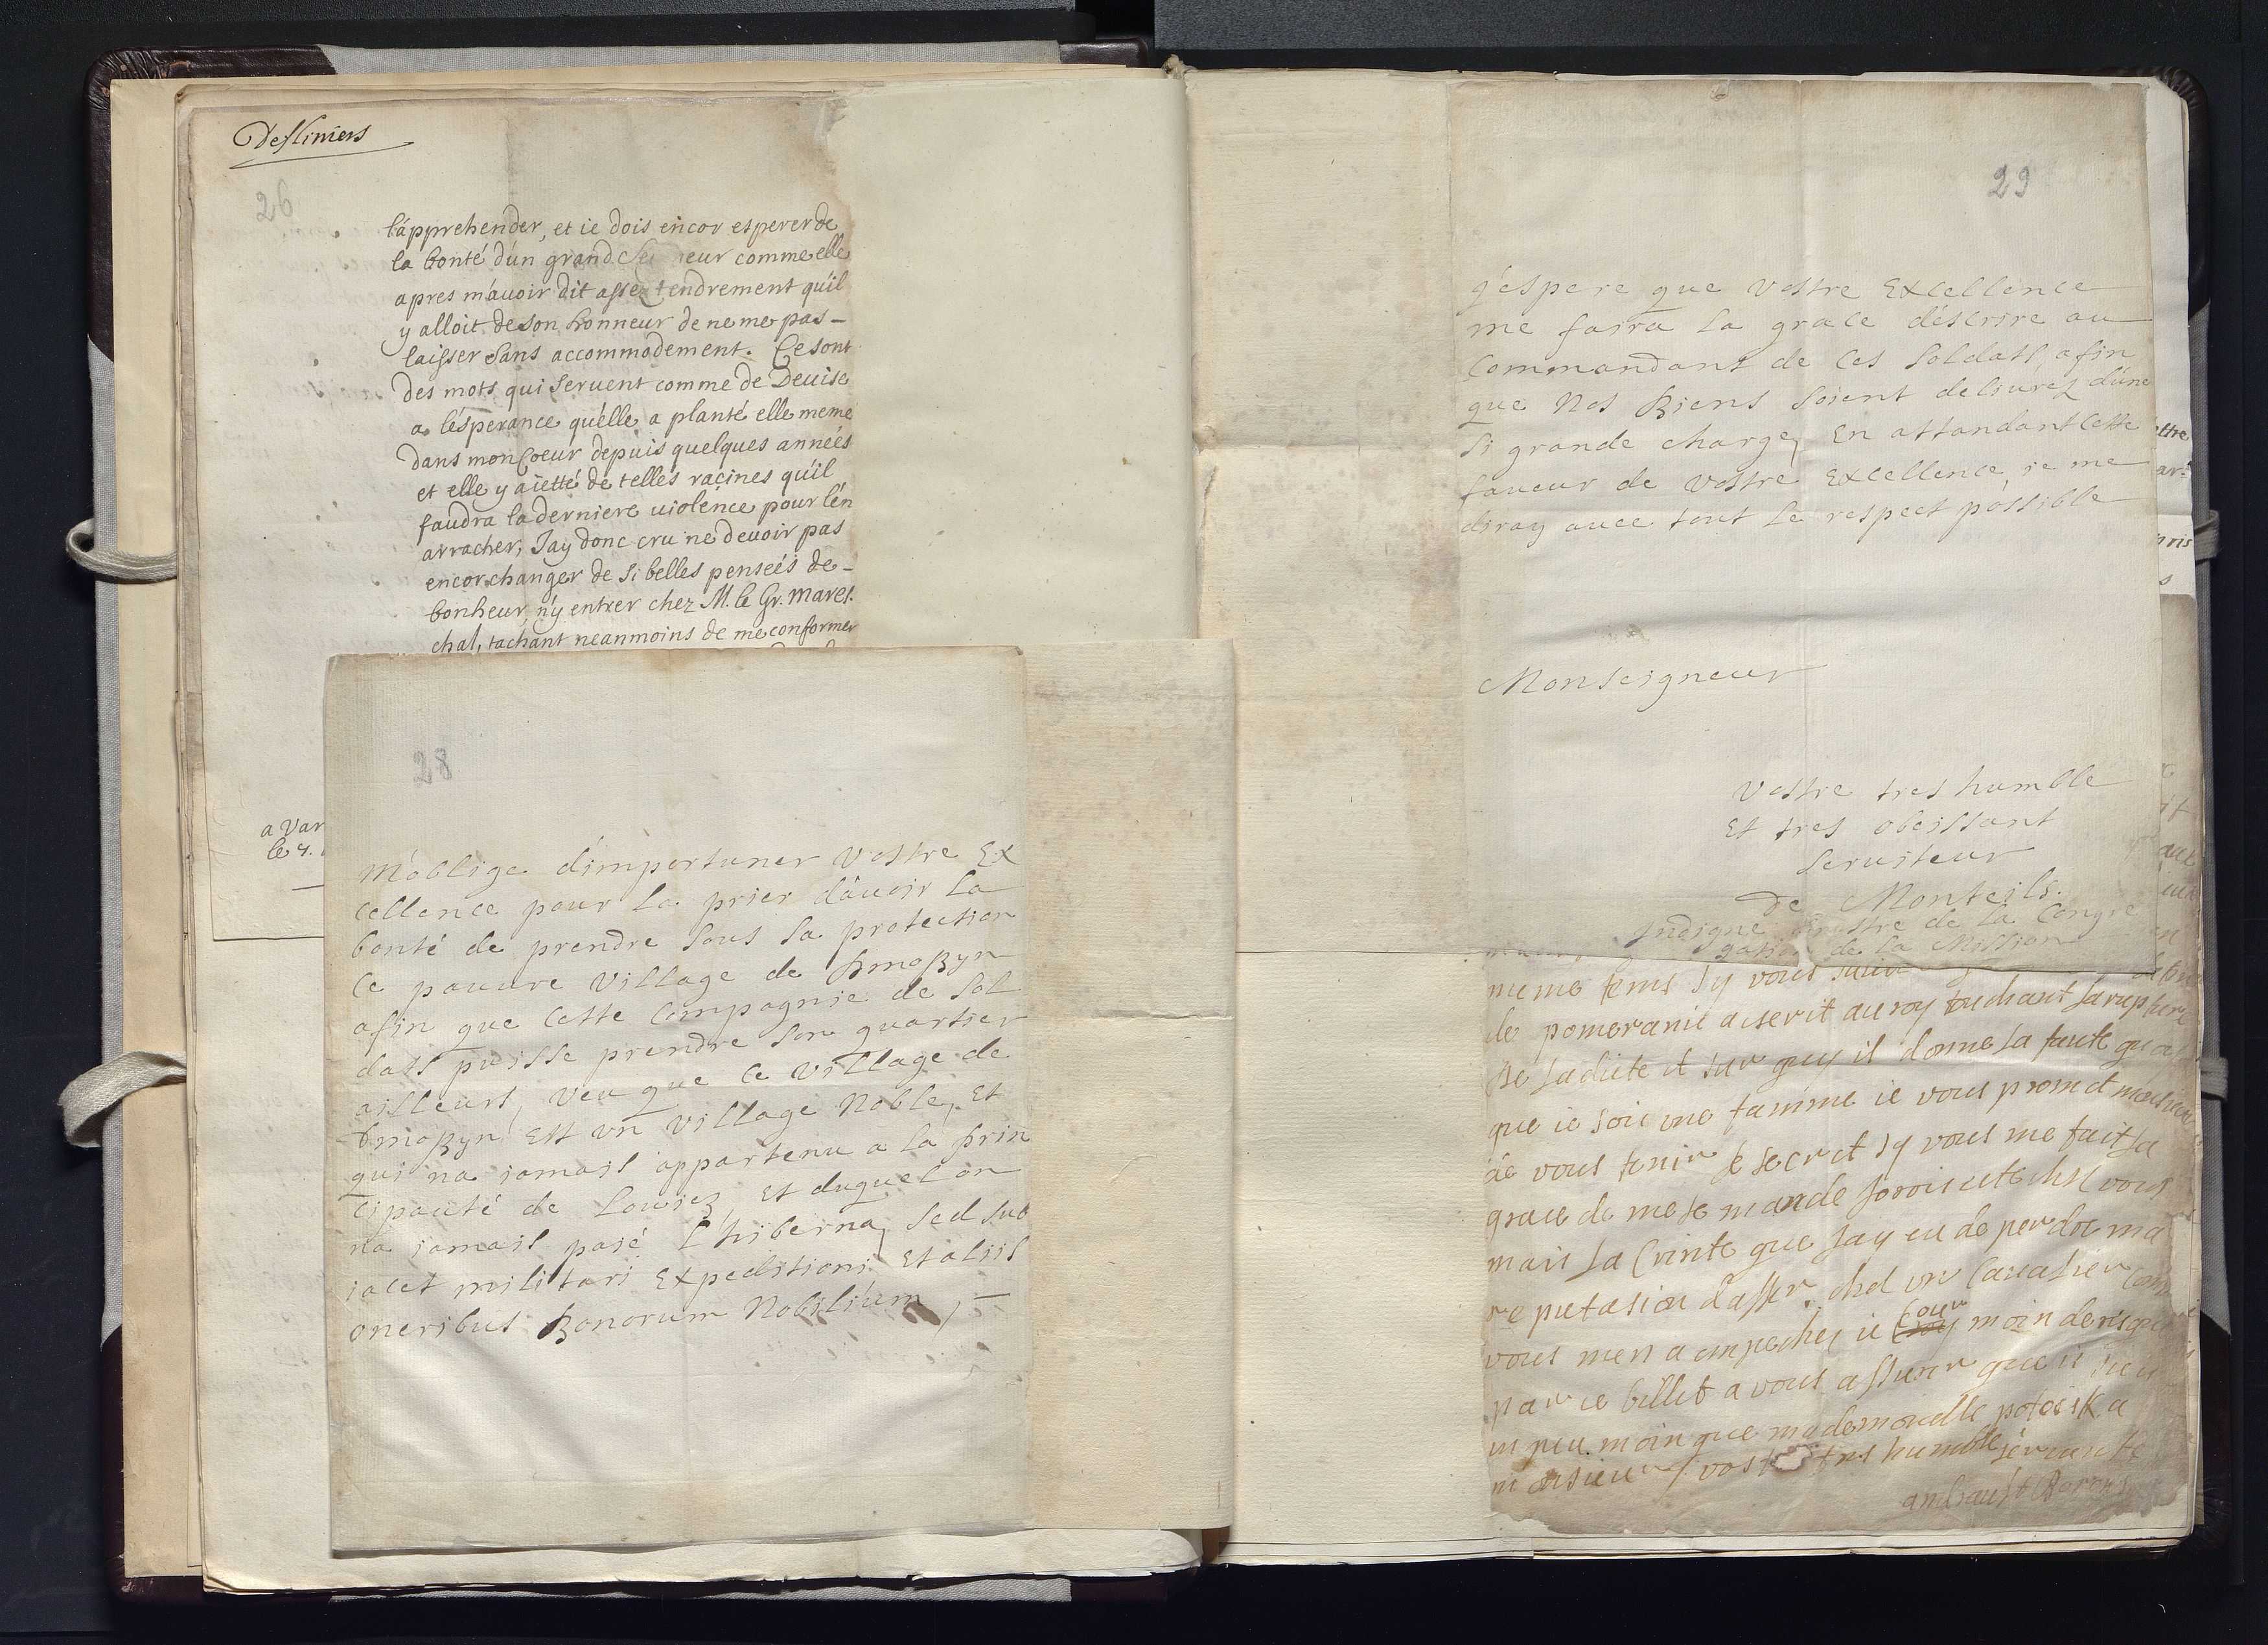 Desliniers
26
l'apprehender, et ie dois encor esperer de
la bonté d'un grand Sei neur comme elle
apres m'auoir dit assez tendrement qu'il
y alloit de son honneur de ne me pas –
laisser sans accommodement. Ce sont
des mots qui seruent comme de Deuise
a l'esperance qu'elle a planté elle meme
dans mon Coeur depuis quelques anneés
et elle y a ietté de telles racines qu'il
faudra la derniere uiolence pour l'en
arracher, J'ay donc cru ne deuoir pas
encor changer de si belles penseés de –
bonheur, n'y entrer chez M. le Gr. Mares.
chal, tachant neanmoins de me conformer
a Var
le 4.
28
M'oblige d'importuner Vostre Ex
cellence pour la prier d'auoir la
bonté de prendre sous sa protection
ce pauure Village de
afin que cette Compagnie de Sol
dats puisse prendre son quartier
ailleurs, Veu que ce Village de
Est vn Village Noble, Et
qui na iamais appartenu a la Prin
cipauté de Lowicz, Et duquel on
na iamais paié l'hiberna, sed sub
iacet militari Expeditioni Et aliis
oneribus Bonorum Nobilium, –
29
j'espere que Vostre Excellence
me faira la grace d'escrire au
Commandant de ces soldats, afin
que Nos Biens soient deliurez d'une
si grande charge, En attandant cette
faueur de Vostre Excellence, ie me
diray auec tout le respect possible
Monseigneur
Vostre tres humble
Et tres obeissant
Seruiteur
de Monteils.
Indigne stre de la Congre
gation de la Mission
meme tems sy vous
de pomeranie a iscrit au roy touchant la rupture
de la diete et sur quoy il donne la faute quoy
que ie soie une famme ie vous promet
de vous tenir le secret sy vous me fait la
grace de me le mande vous
mais la crinte que jay eu de perdre ma
reputasion daller ched un Cauasier
vous men a empeche ie cour moin de risque
par ce billet a vous assurer que ie suis
un peu moin que mademoiselle potoska
monsieur vost tres humble seruante